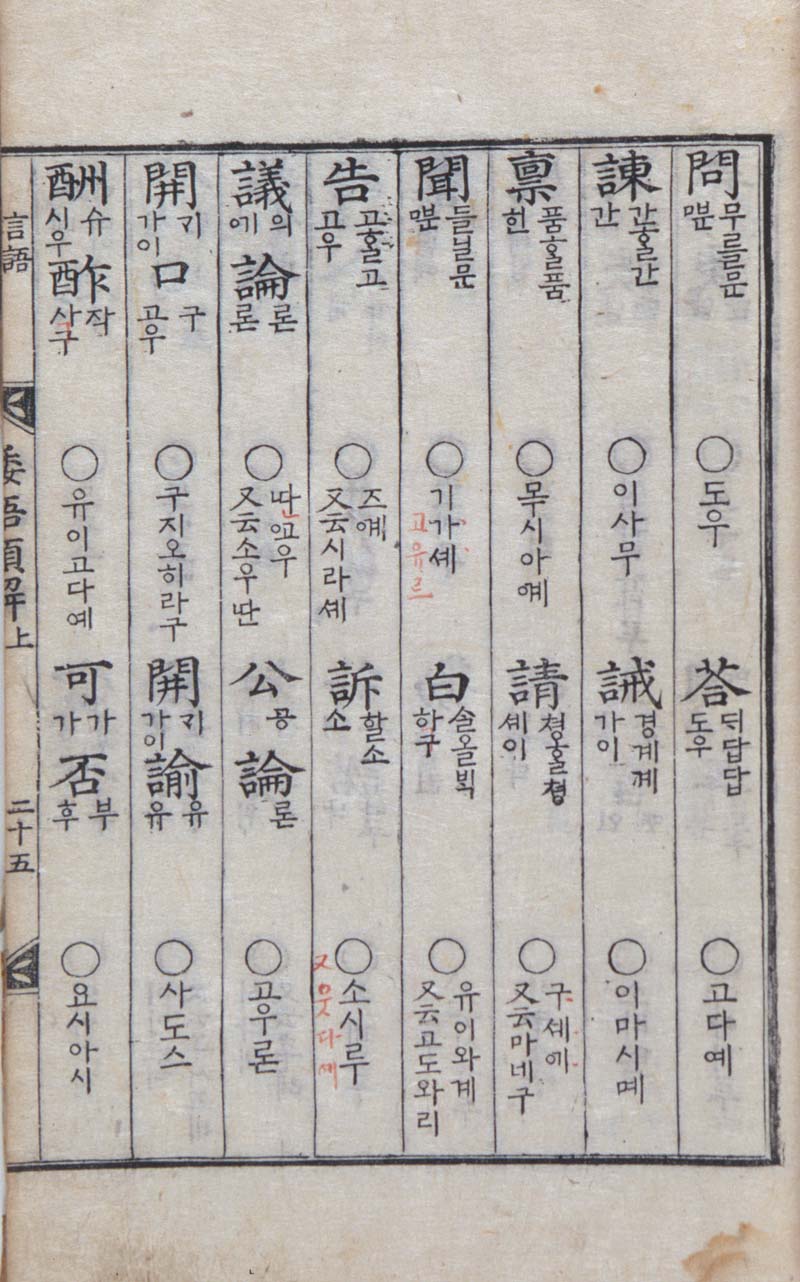 問 무를문 ○도우 荅 뒤답답 도우 ○고다예
諫 간홀간 간 ○이사무 誡 경계계 가이 ○이마시몌
禀 품홀품 힌 ○목시아예 請 쳥홀쳥 셰이 ○구셰예 又云마네구
聞 들늘문 ○기가셰 고유르 白 ᄉᆞᆯ올ᄇᆡᆨ 하구 ○유이와계 又云고도와리
告 고홀고 고우 ○즈예 又云시라셰 訴 할소 소 ○소시루 又웃다예
議 의 에 論 론 론 ○딴고우 又云소우딴 公 공 論 론 ○고우론
開 ᄀᆡ 가이 口 구 고우 ○구지오히라구 開 ᄀᆡ 가이 諭 유 유 ○사도스
酬 슈 시우 酢 작 사구 ○유이고다예 可 가 가 否 부 후 ○요시아시
言語 倭語類解上 二十五